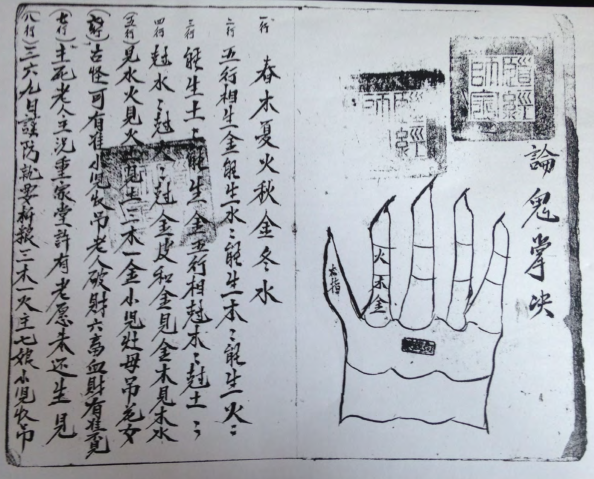 論鬼掌决
道經師寶
道經師
火木金
一行 春木夏火秋金冬水
二行 五行相生金能生水〻能生木〻能生火〻
三行 能生土〻能生金五行相尅木〻尅土〻
四行 尅水〻尅火〻尅金皮和金見金木見木水
(五行) 見水火見火土見土三木一金小児壯母吊花女
古怪可有准小児收吊老人破財六畜血財有准
(七行) 主死老人主況重家堂許有老愿未还生見
(八行) 三六九月謹防就要折粮三木一火主七娘小児收吊